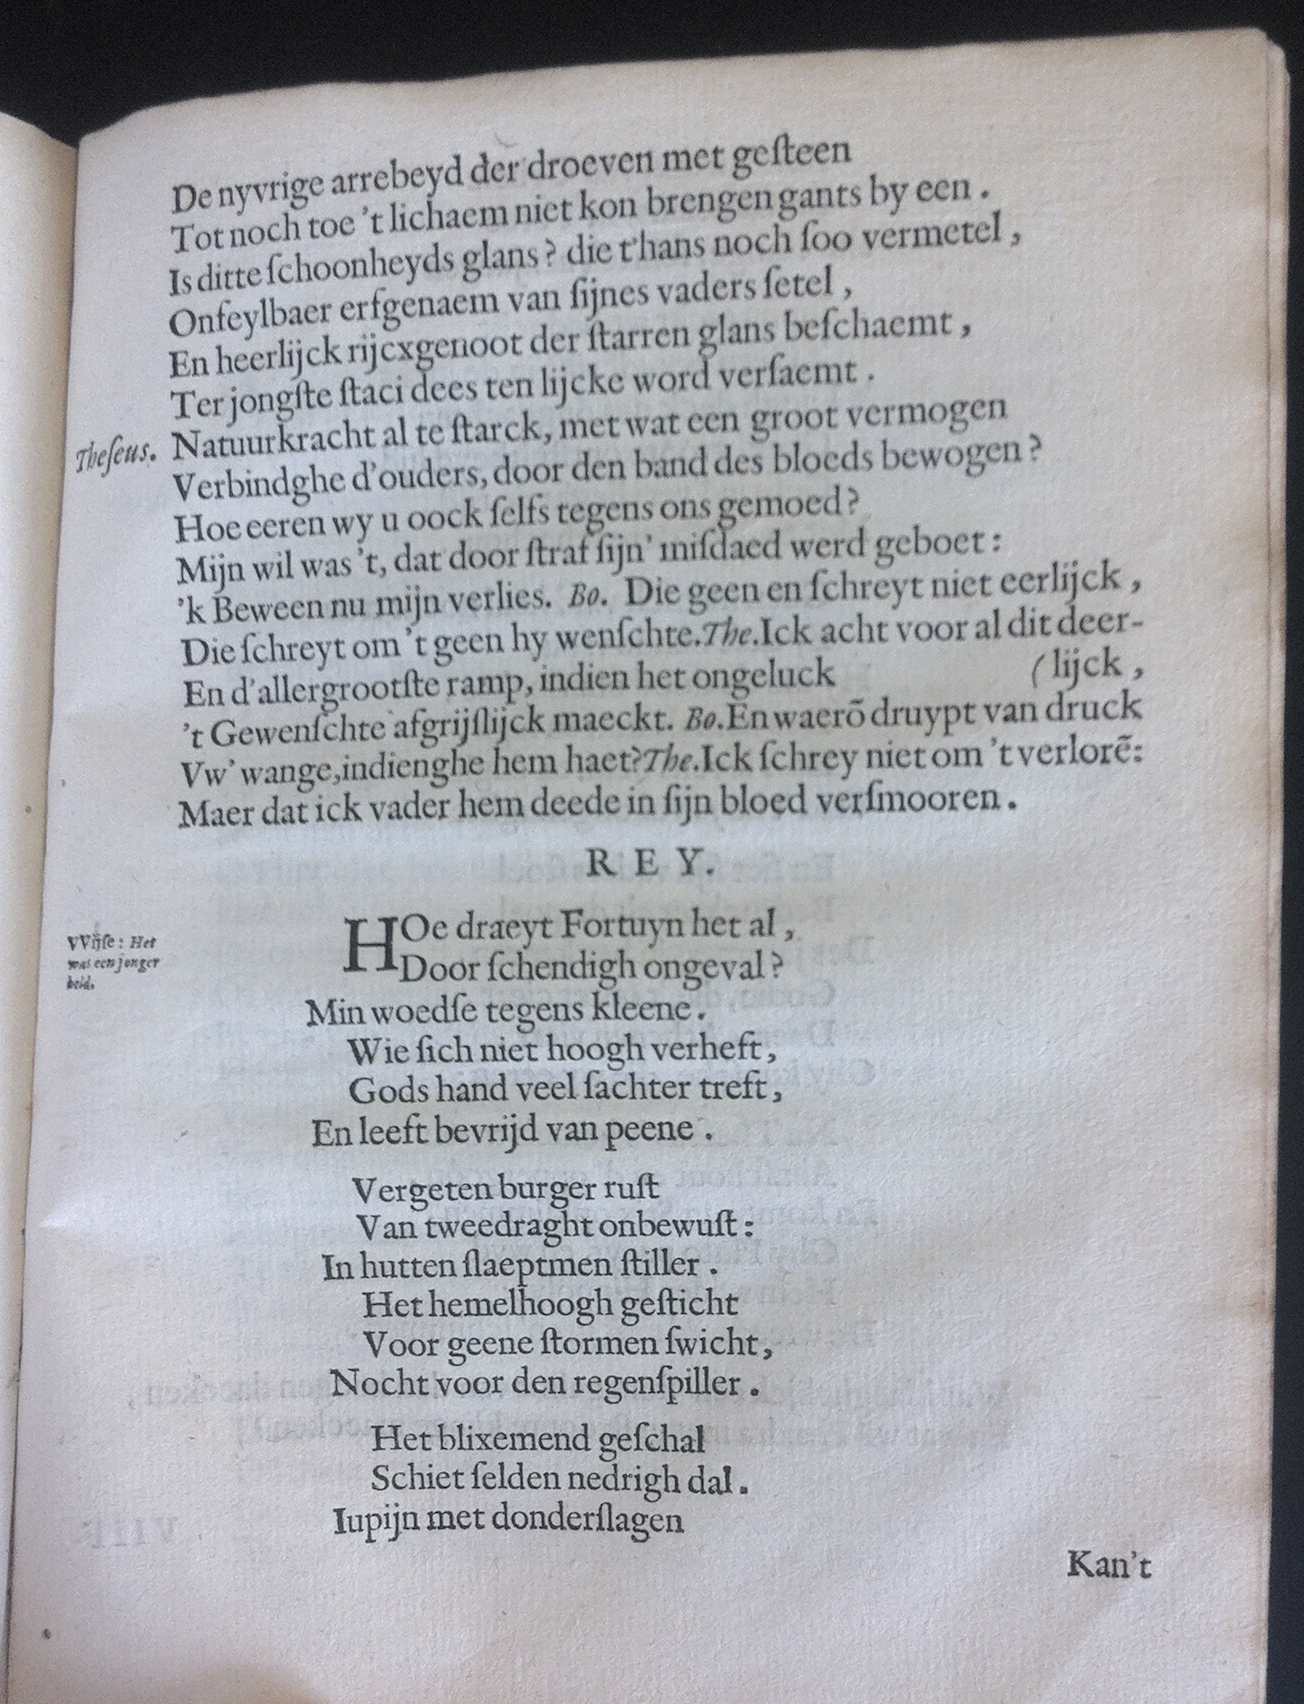 De nyvrige arrebeyd der droeven met geſteen
Tot noch toe 't lichaem niet kon brengen gants by een.
Is ditte ſchoonheyds glans? die t'hans noch ſoo vermetel,
Onfeylbaer erfgenaem van ſijnes vaders ſetel,
En heerlijck rijcxgenoot der ſtarren glans beſchaemt,
Ter jongſte ſtaci dees ten lijcke word verſaemt.
Theſeus. Natuurkracht al te ſtarck, met wat een groot vermogen
Verbindghe d'ouders, door den band des bloeds bewogen?
Hoe eeren wy u oock ſelfs tegens ons gemoed?
Mijn wil was 't, dat door ſtraf ſijn' miſdaed werd geboet:
'k Beween nu mijn verlies. Bo. Die geen en ſchreyt niet eerlijck,
Die ſchreyt om 't geen hy wenſchte. The. Ick acht voor al dit deer-
En d'allergrootſte ramp, indien het ongeluck (lijck,
't Gewenſchte afgrijſlijck maeckt. Bo. En waerõ druypt van druck
Vw' wange, indienghe hem haet? The. Ick ſchrey niet om 't verlorẽ:
Maer dat ick vader hem deede in ſijn bloed verſmooren.
REY.
VVijſe: Het
was een jonger
held.
HOe draeyt Fortuyn het al,
Door ſchendigh ongeval?
Min woedſe tegens kleene.
Wie ſich niet hoogh verheft,
Gods hand veel ſachter treft,
En leeft bevrijd van peene.
Vergeten burger ruſt
Van tweedraght onbewuſt:
In hutten ſlaeptmen ſtiller.
Het hemelhoogh geſticht
Voor geene ſtormen ſwicht,
Nocht voor den regenſpiller.
Het blixemend geſchal
Schiet ſelden nedrigh dal.
Iupijn met donderſlagen
Kan't